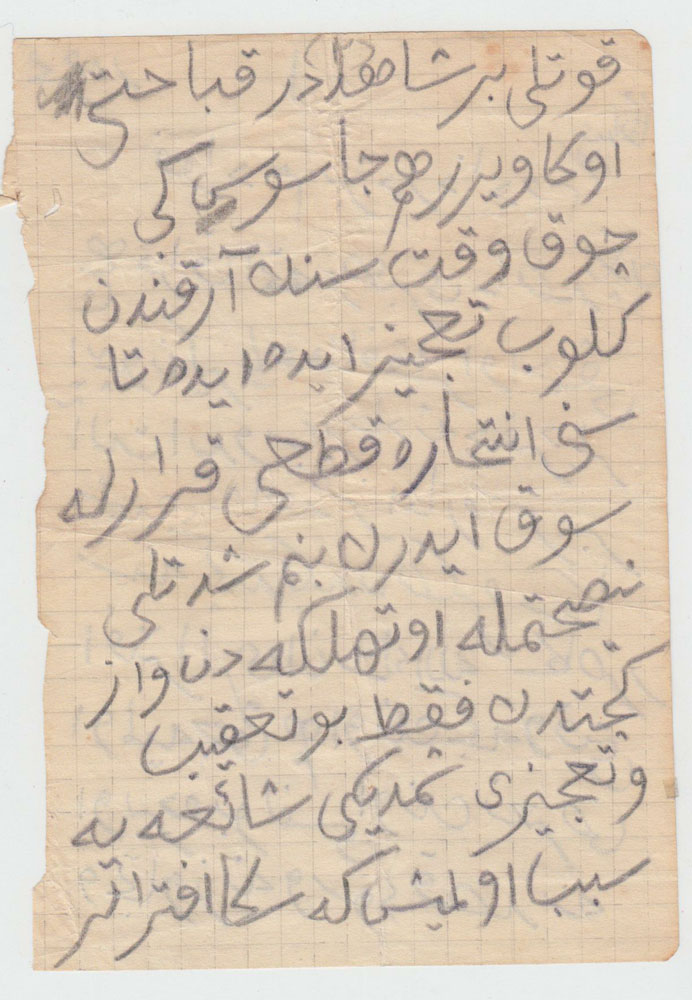 قوتلی بر شاهددر قباحتی
اوکا ویررم جاسوس کبی
چوق وقت سنك آرقندن
کلوب تعجیز ایده ایده تا
سنی انتحاره قطعی قرارله
سوق ایدرك بنم شدتلی
نصیحتمله او تهلکه دن واز
کچتدك فقط بو تعقیب
و تعجیزی شمدیکی شائعه یه
سبب اولمیش که سکا افترا